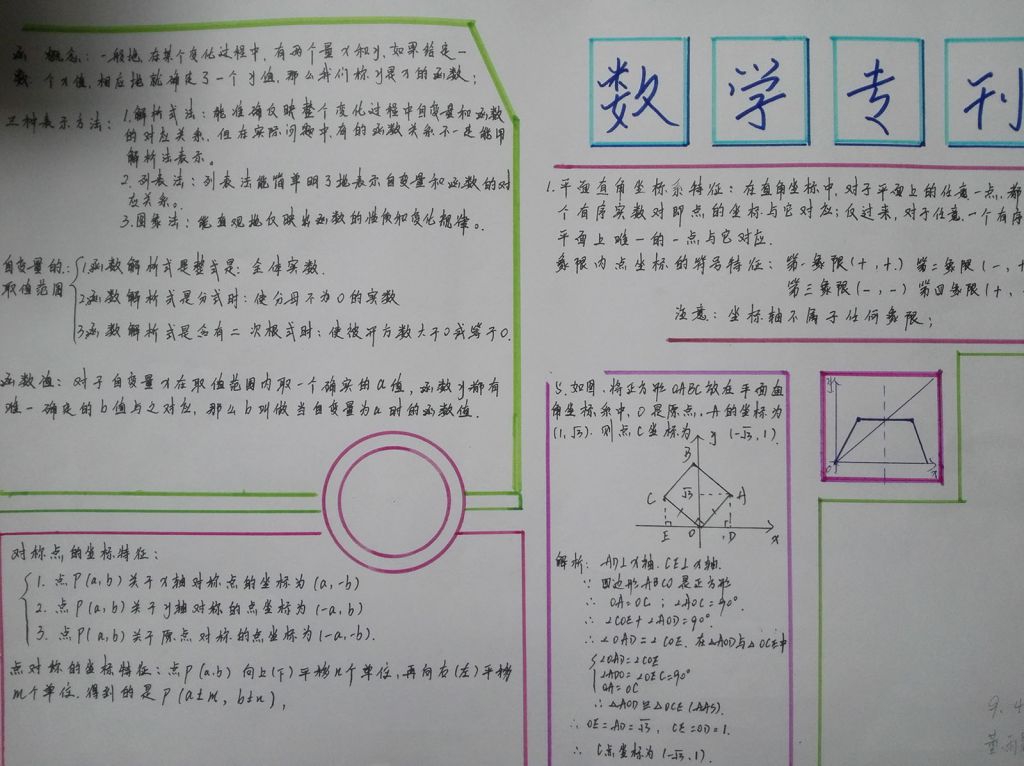 函 概念：一般地，在某个变化过程中，有两个量x和y，如果给定一
数 个x值，相应地就确定了一个y值，那么我们称y是x的函数；
三种表示方法：1.解析式法：能准确反映整个变化过程中自变量和函数
的对应关系，但在实际问题中，有的函数关系不一定能用
解析法表示。
2.列表法：列表法能简单明了地表示自变量和函数的对
应关系。
3.图象法：能直观地反映出函数的性质和变化规律。
自变量的：
取值范围
1.函数解析式是整式是：全体实数.
2函数解析式是分式时：使分母不为0的实数
3函数解析式是含有二次根式时：使被开方数大于0或等于0.
函数值：对于自变量x在取值范围内取一个确实的a值，函数y都有
唯一确定的b值与之对应，那么b叫做当自变量为a时的函数值.
对称点的坐标特征：
1. 点P(a,b)关于x轴对称点的坐标为(a,-b)
2. 点P(a,b)关于y轴对称的点坐标为(-a,b)
3. 点P(a,b)关于原点对称的点坐标为(-a,-b).
点对称的坐标特征：点P(a,b) 向上(下)平移n个单位，再向右(左)平移
m个单位.得到的是P(a±m, b±n),
数学专刊
1.平面直角坐标系特征：在直角坐标中，对于平面上的任意一点，都
个有序实数对即点的坐标与它对应；反过来，对于任意一个有序
平面上唯一的一点与它对应.
象限内点坐标的符号特征：第一象限(+,+) 第二象限(-,+
第三象限(-,-) 第四象限(+,
注意：坐标轴不属于任何象限；
5.如图，将正方形OABC放在平面直
角坐标系中，O是原点，A的坐标为
(1,√3).则点C坐标为 (-√3,1).
y
B
C √3 A
E O D x
解析：AD⊥x轴.CE⊥x轴.
∵ 四边形ABCO是正方形
∴ OA=OC；∠AOC=90°.
∴ ∠COE+∠AOD=90°.
∴ ∠OAD=∠COE. 在△AOD与△OCE中
∠OAD=∠COE
∠ADO=∠OEC=90°
OA=OC
∴ △AOD≌△OCE(AAS).
∴ OE=AD=√3, CE=OD=1.
∴ C点坐标为(-√3,1).
y
O x
9.4